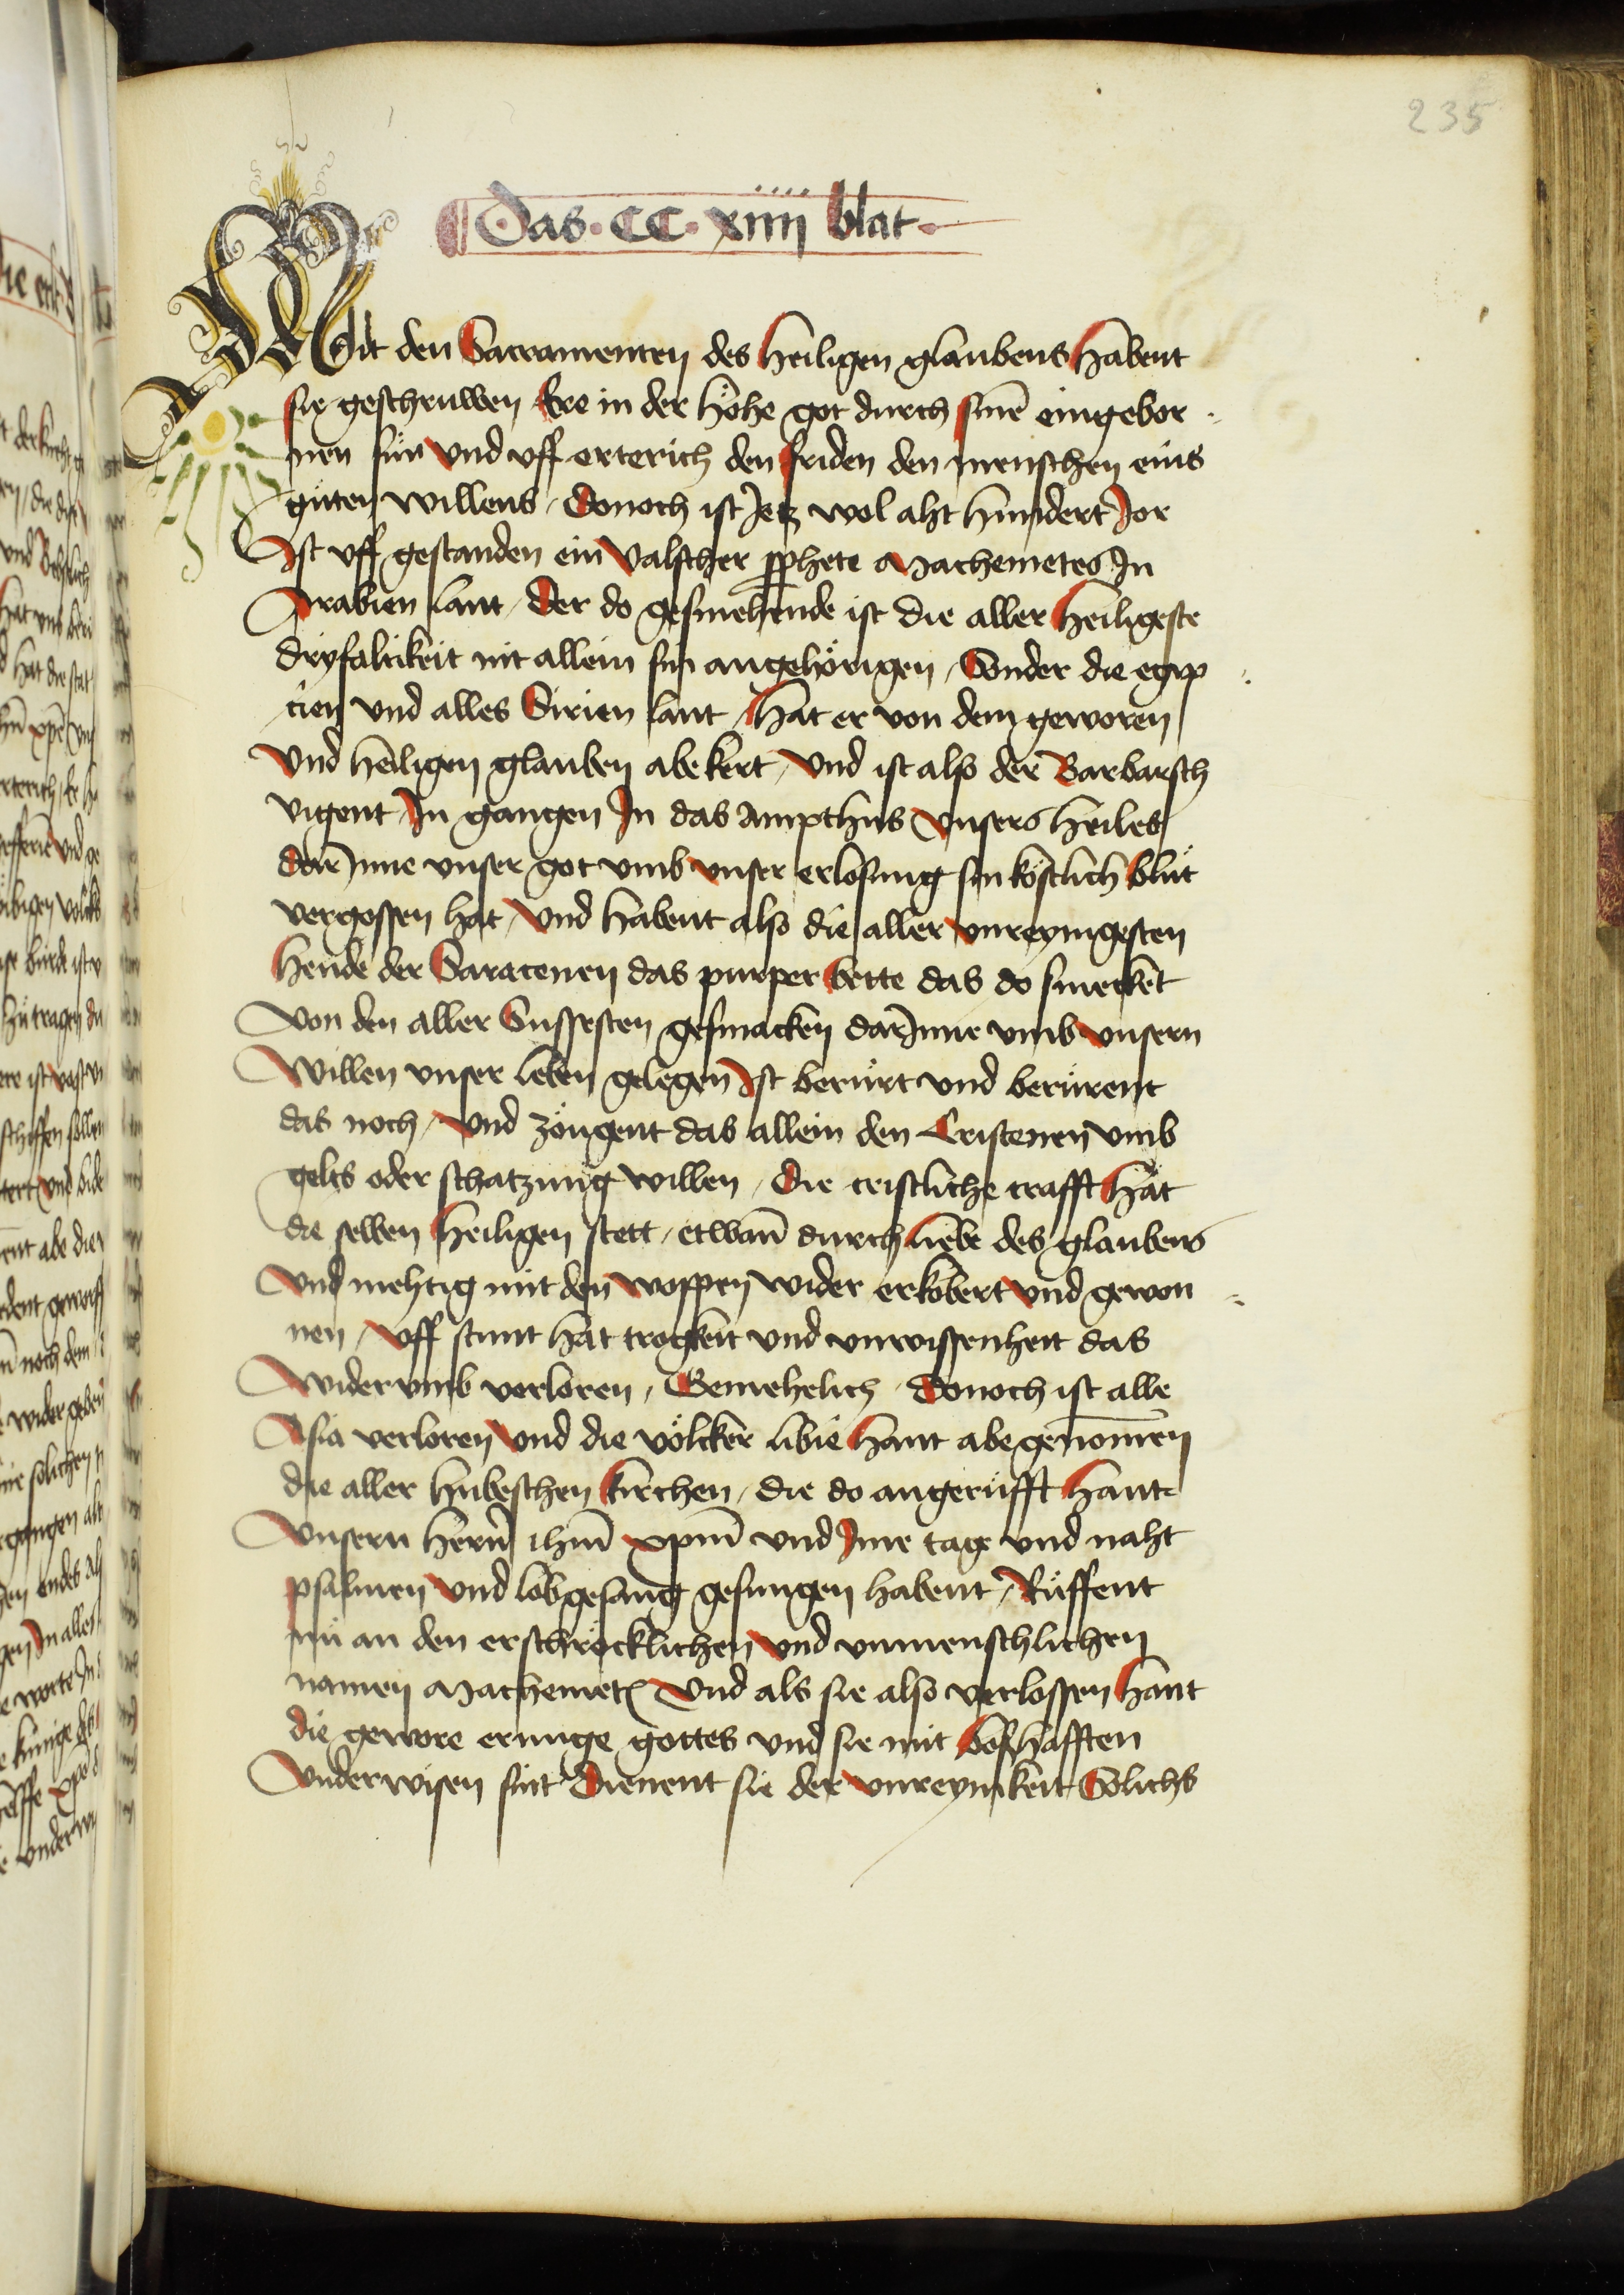 235
Das · CC · xiiii blat ·
Mit den Sacramenten des heiligen glaubens habent
sie geschruwen Ere in der höhe got durch sinē eingebor
nen sün vnd vff erterich den friden den menschen eins
gütten willens / Donoch ist Jetz wol aht hundert Jor
Ist vff gestanden ein valscher pphete Machemetes In
Arabien lant / Der do gesmehende ist die aller heiligeste
dryfaltikeit nit allein sin angehörigen / Sonder die egip
cien vnd alles Sirien lant / hat er von dem geworen
vnd heiligen glauben abekert / vnd ist also der Barbarsch
vigent In gangen In das ampthus vnsers heiles
dar Inne vnser got vmb vnser erlosung sin köstlich blüt
vergossen hat / vnd habent also die aller vnreynigesten
hende der Saracenen das purper bette das do smecket
Von den aller Sussesten gesmacken dar Inne vmb vnsern
Willen vnser leben gelegen Ist berürt vnd berürent
das noch / vnd zöugent das allein den Cristenen vmb
gelts oder schatzung willen / Die cristliche crafft hat
die selben heiligen stett / etwan̄ durch liebe des glaubens
vnd mehtig mit den woppen wider erkobert vnd gewon
nen / vff stunt hat trogkeit vnd vnwissenheit das
Widervmb verloren / Gemehelich / Donoch ist alle
Asia verloren vnd die völcker libie hant abe genom̄en
die aller hubeschen kirchen / die do angerüfft hant
Vnsern hern̄ ihm̄ xpm̄ vnd Jme tage vnd naht
psalmen vnd lobgesang gesungen habent / Rüffent
nü an den erschröcklichen vnd vnmenschlichen
namen Machemetz vnd als sie also verlossen hant
die gewore erunge gottes vnd sie mit boßhafften
Vnderwisen sint Dienent sie der vnreynikeit Solichs